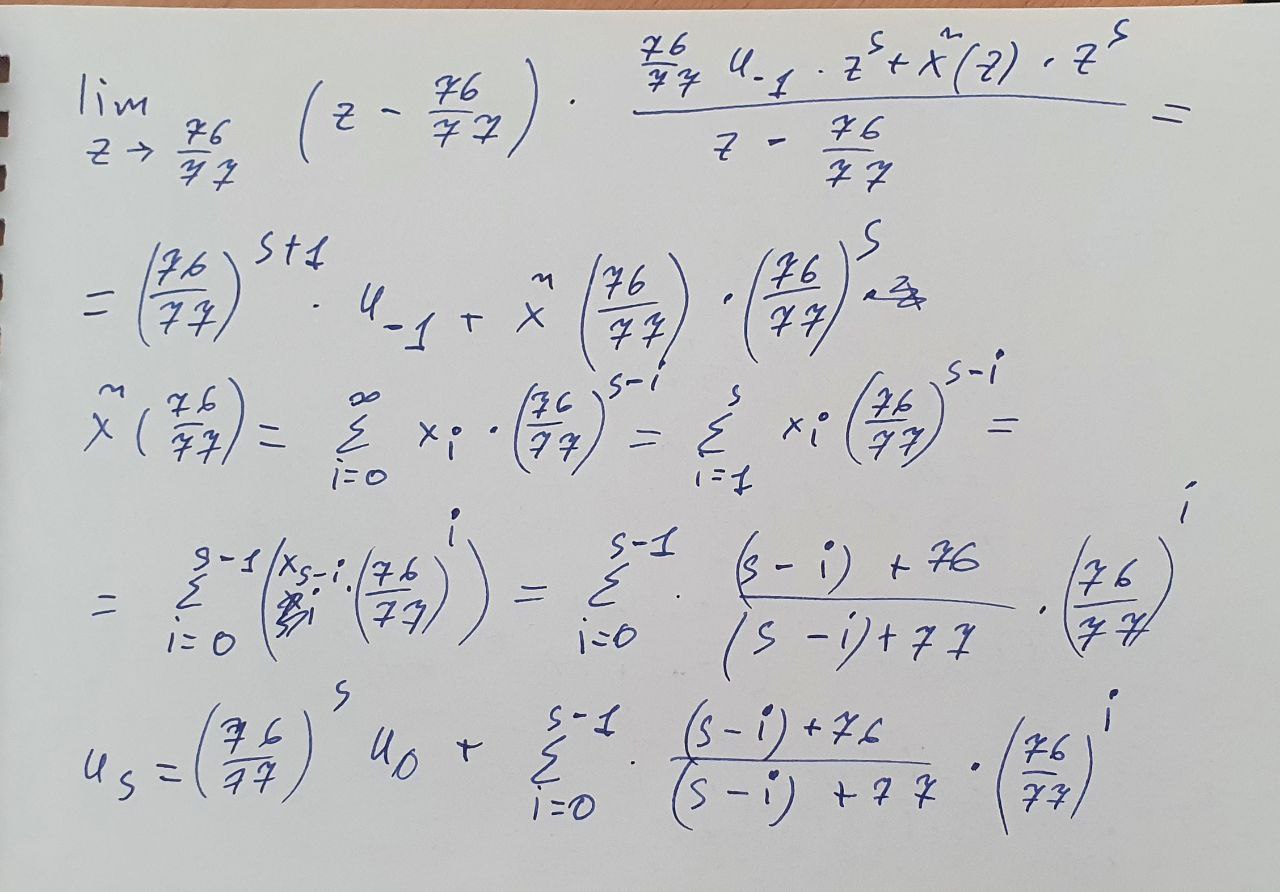 lim_{z→76/77} (z - 76/77) · (76/77 u_{-1} · z^s + x̃(z) · z^s)/(z - 76/77) =
= (76/77)^{s+1} · u_{-1} + x̃(76/77) · (76/77)^s
x̃(76/77) = Σ_{i=0}^{∞} x_i · (76/77)^{s-i} = Σ_{i=1}^{s} x_i (76/77)^{s-i} =
= Σ_{i=0}^{s-1} (x_{s-i} · (76/77)^i) = Σ_{i=0}^{s-1} · ((s-i)+76)/((s-i)+77) · (76/77)^i
u_s = (76/77)^s u_0 + Σ_{i=0}^{s-1} · ((s-i)+76)/((s-i)+77) · (76/77)^i